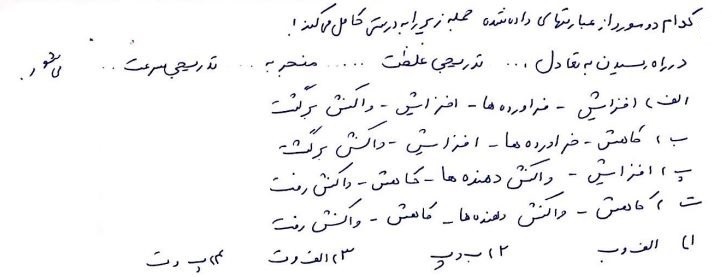 کدام دو مورد از عبارتهای داده شده جمله زیر را به درستی کامل می کند؟
در راه رسیدن به تعادل ... تدریجی غلظت ..... منجر به ... تدریجی سرعت ... می شود.
الف) افزایش - فراورده ها - افزایش - واکنش برگشت
ب) کاهش - فراورده ها - افزایش - واکنش برگشت
پ) افزایش - واکنش دهنده ها - کاهش - واکنش رفت
ت) کاهش - واکنش دهنده ها - کاهش - واکنش رفت
۱) الف و ب ۲) ب و پ ۳) الف و ت ۴) پ و ت